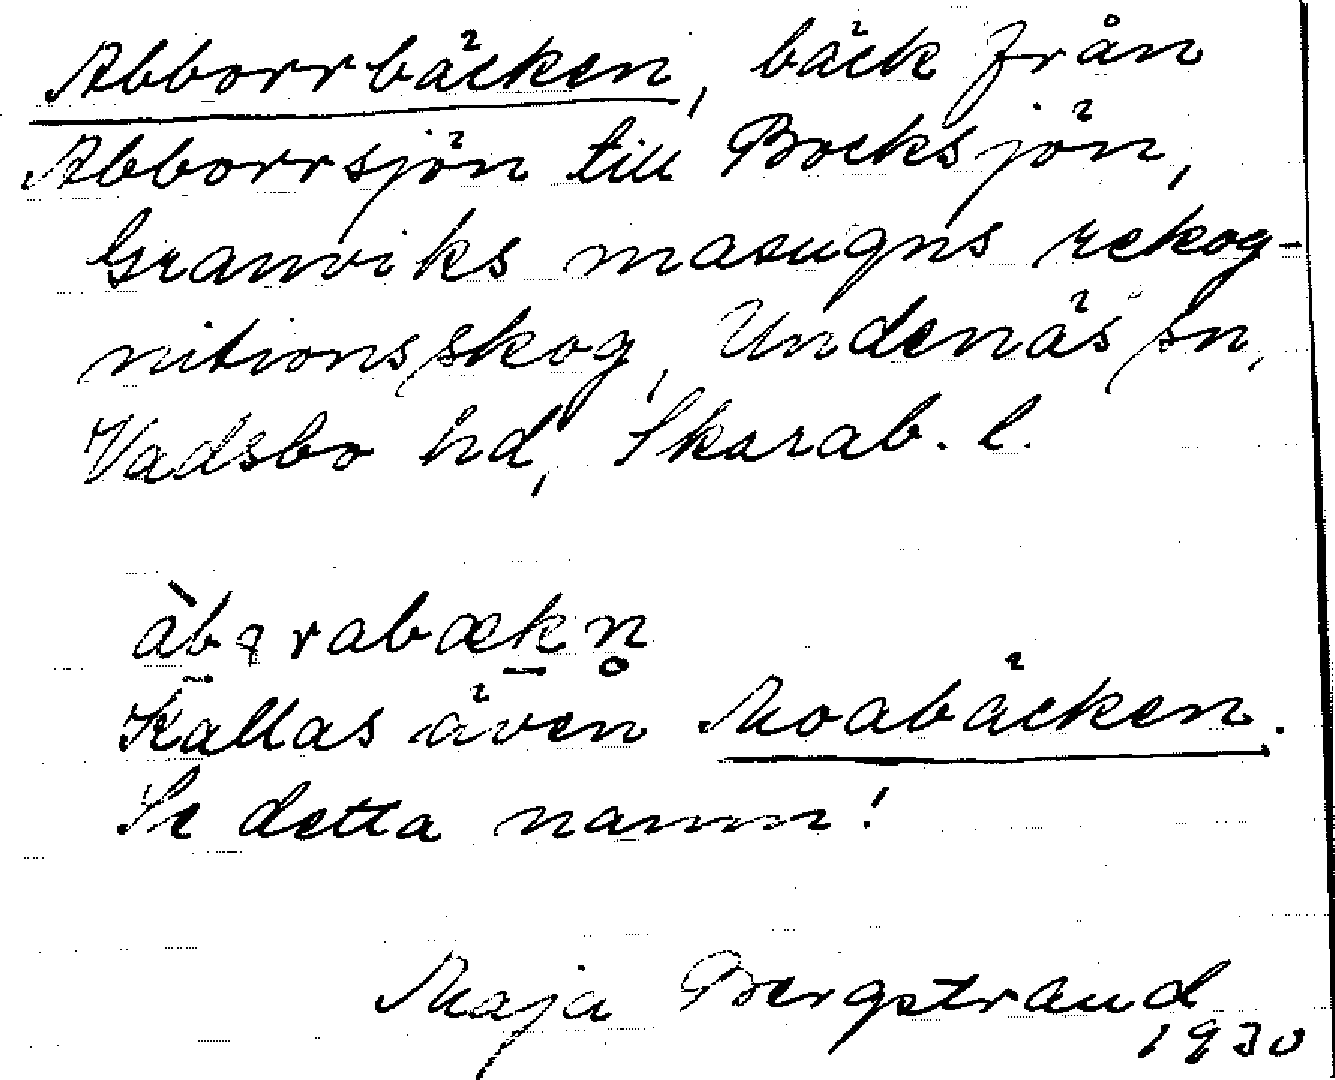 Abborrbäcken, bäck från
Abborrsjön till Bocksjön,
Granviks masugns rekog-
nitionsskog, Undenäs sn,
Vadsbo hd, Skarab. l.
Kallas även Moabäcken.
Se detta namn!
Maja Bergstrand
1930